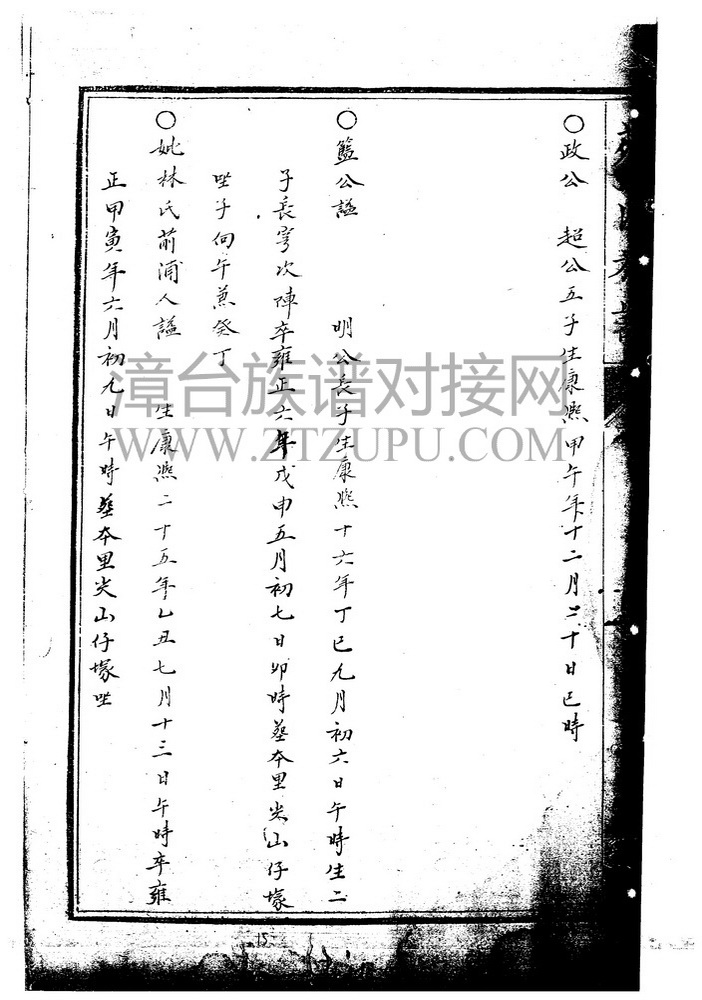 ○政公 超公五子生康熙甲午年十二月二十日巳時
○籃公謚 明公長子生康熙十六年丁巳九月初六日午時生二
子長寧次陣卒雍正六年戊申五月初七日卯時塟本里尖山仔塚
坐子向午兼癸丁
○妣林氏前浦人謚 生康熙二十五年乙丑七月十三日午時卒雍
正甲寅年六月初九日午時塟本里尖山仔塚坐
15
漳台族谱对接网
WWW.ZTZUPU.COM